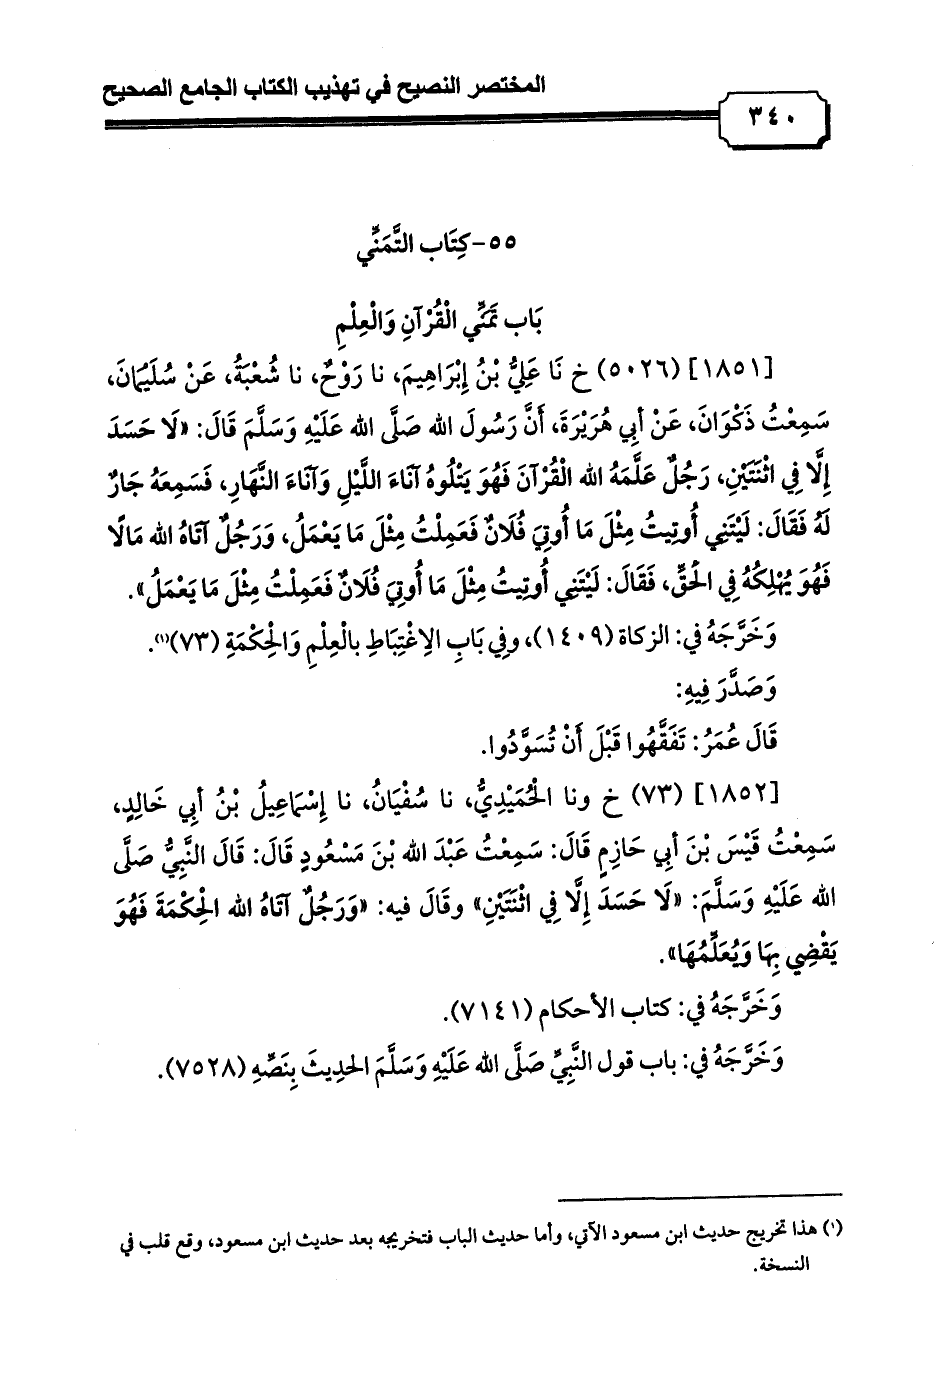 المختصر النصيح في تهذيب الكتاب الجامع الصحيح
٣٤٠
٥٥- كِتَاب التَّمَنِّي
بَاب تَمَنِّي الْقُرْآنِ وَالْعِلْمِ
[١٨٥١] (٥٠٢٦) خ نَا عَلِيُّ بْنُ إِبْرَاهِيمَ، نا رَوْحٌ، نا شُعْبَةُ، عَنْ سُلَيْمَانَ،
سَمِعْتُ ذَكْوَانَ، عَنْ أبِي هُرَيْرَةَ، أَنَّ رَسُولَ الله صَلَّى الله عَلَيْهِ وَسَلَّمَ قَالَ: «لَا حَسَدَ
إِلَّا فِي اثْنَتَيْنِ، رَجُلٌ عَلَّمَهُ الله الْقُرْآنَ فَهُوَ يَتْلُوهُ آنَاءَ اللَّيْلِ وَآنَاءَ النَّهَارِ، فَسَمِعَهُ جَارٌ
لَهُ فَقَالَ: لَيْتَنِي أُوتِيتُ مِثْلَ مَا أُوتِيَ فُلَانٌ فَعَمِلْتُ مِثْلَ مَا يَعْمَلُ، وَرَجُلٌ آتَاهُ الله مَالًا
فَهُوَ يُهْلِكُهُ فِي الْحَقِّ، فَقَالَ: لَيْتَنِي أُوتِيتُ مِثْلَ مَا أُوتِيَ فُلَانٌ فَعَمِلْتُ مِثْلَ مَا يَعْمَلُ».
وَخَرَّجَهُ فِي: الزكاة (١٤٠٩)، وفِي بَابِ الِاغْتِبَاطِ بالْعِلْمِ وَالْحِكْمَةِ (٧٣)(١).
وَصَدَّرَ فِيهِ:
قَالَ عُمَرُ: تَفَقَّهُوا قَبْلَ أَنْ تُسَوَّدُوا.
[١٨٥٢] (٧٣) خ ونا الْحُمَيْدِيُّ، نا سُفْيَانُ، نا إِسْمَاعِيلُ بْنُ أبِي خَالِدٍ،
سَمِعْتُ قَيْسَ بْنَ أبِي حَازِمٍ قَالَ: سَمِعْتُ عَبْدَ الله بْنَ مَسْعُودٍ قَالَ: قَالَ النَّبِيُّ صَلَّى
الله عَلَيْهِ وَسَلَّمَ: «لَا حَسَدَ إِلَّا فِي اثْنَتَيْنِ» وقَالَ فيه: «وَرَجُلٌ آتَاهُ الله الْحِكْمَةَ فَهُوَ
يَقْضِي بِهَا وَيُعَلِّمُهَا».
وَخَرَّجَهُ فِي: كتاب الأحكام (٧١٤١).
وَخَرَّجَهُ فِي: باب قول النَّبِيِّ صَلَّى الله عَلَيْهِ وَسَلَّمَ الحديثَ بِنَصِّهِ (٧٥٢٨).
(١) هذا تخريج حديث ابن مسعود الآتي، وأما حديث الباب فتخريجه بعد حديث ابن مسعود، وقع قلب في
النسخة.